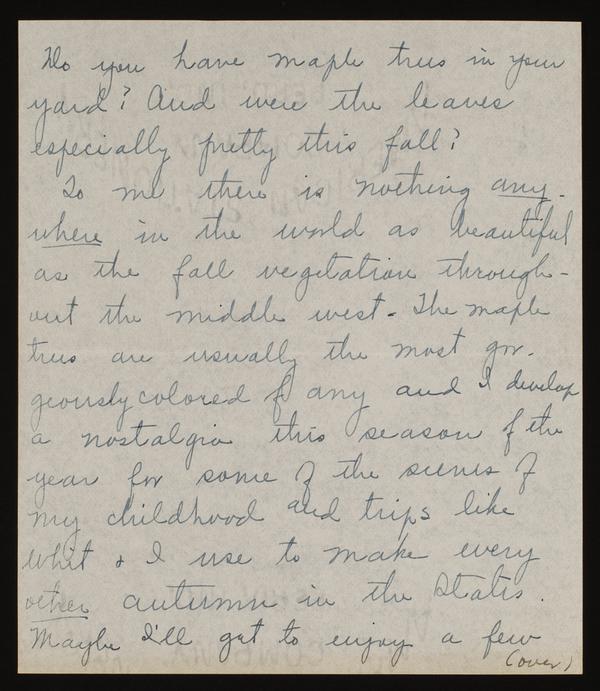 Do you have maple trees in your
yard? And were the leaves
especially pretty this fall?
To me there is nothing any-
where in the world as beautiful
as the fall vegetation through-
out the middle west. The maple
trees are usually the most gor-
geously colored of any and I develop
a nostalgia this season of the
year for some of the scenes of
my childhood and trips like
Whit & I use to make every
other autumn in the States.
Maybe I'll get to enjoy a few
(over)